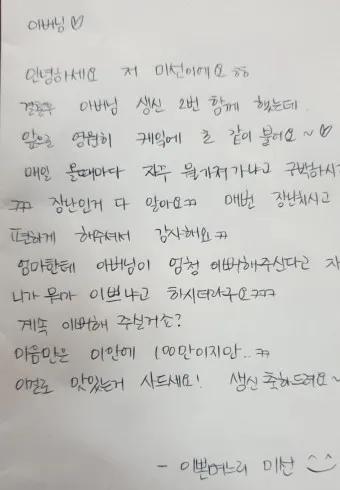 아버님 ♡
안녕하세요 저 미선이에요 ㅎㅎ
결혼후 아버님 생신 2번 함께 했는데.
앞으로 영원히 케익에 초 같이 불어요~♡
매일 올때마다 자꾸 뭘가져가냐고 구박하시
ㅋㅋ 장난인거 다 알아요ㅋㅋ 매번 장난치시고
편하게 해주셔서 감사해요ㅋㅋ
엄마한테 아버님이 엄청 이뻐해주신다고 자
니가 뭐가 이쁘냐고 하시더라구요ㅋㅋㅋ
계속 이뻐해 주실거죠?
마음만은 이안에 100만이지만..ㅋㅋ
이걸로 맛있는거 사드세요! 생신 축하드려요~
- 이쁜며느리 미선